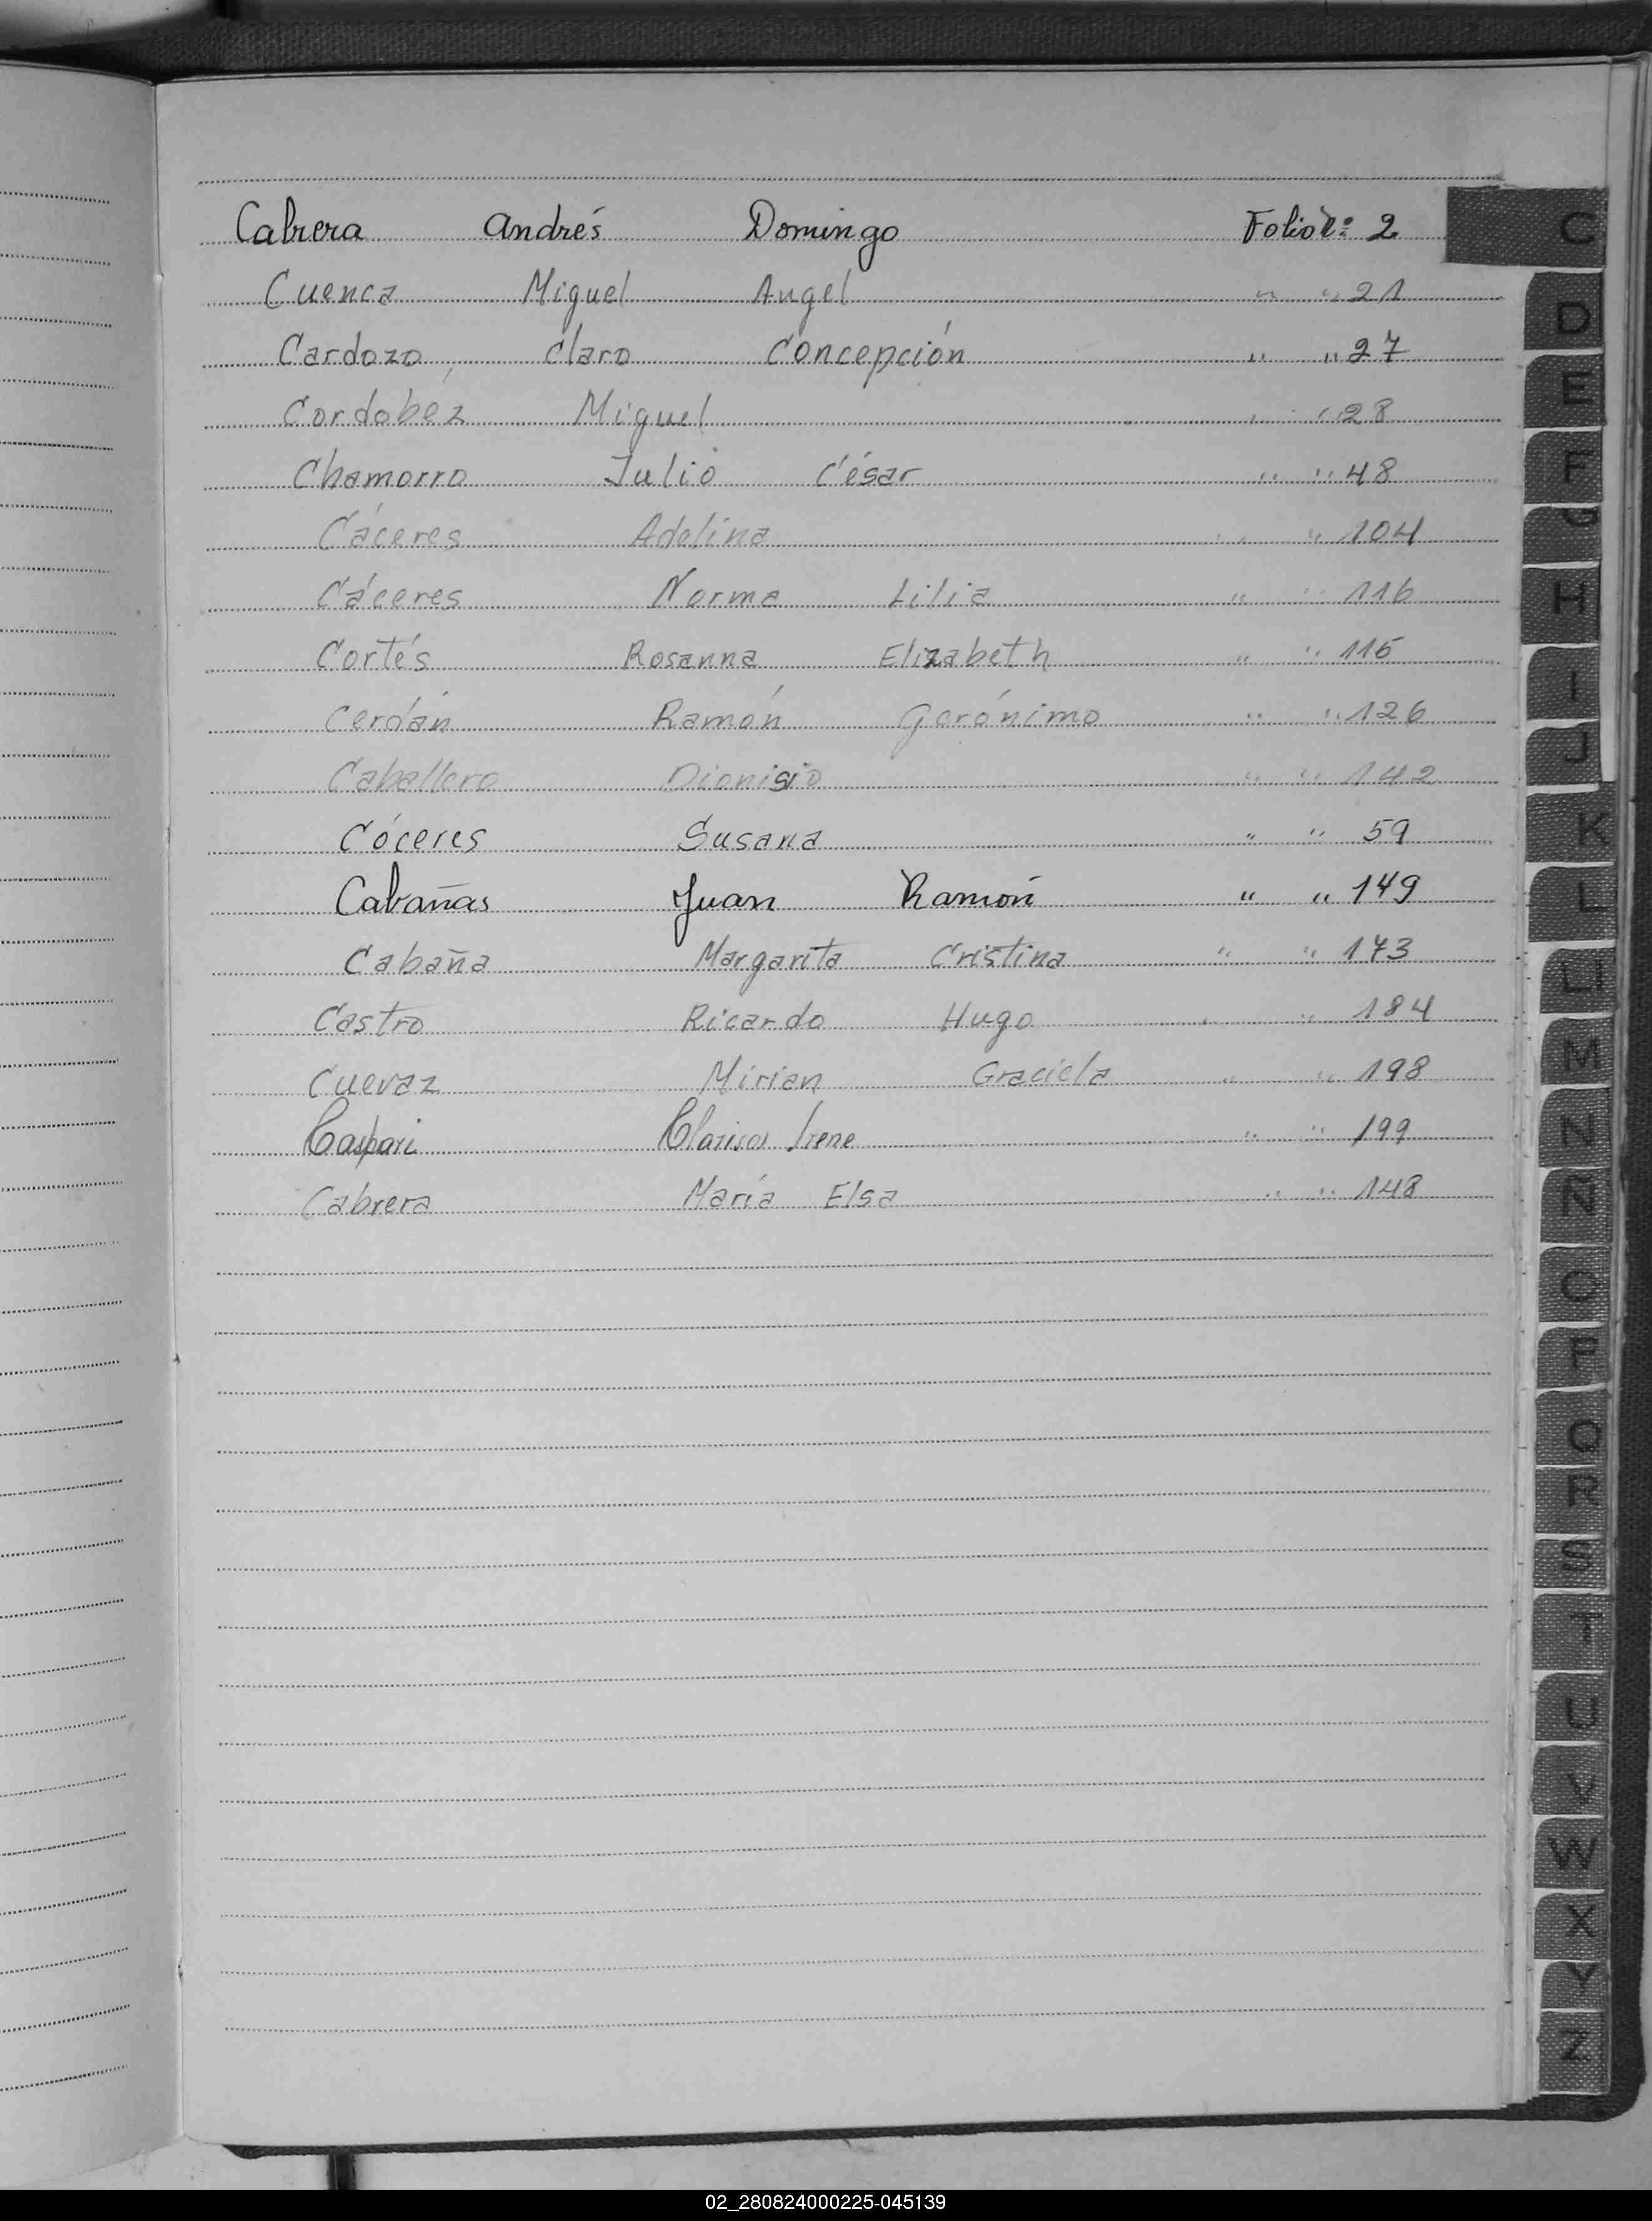 Cabrera Andrés Domingo Folio n: 2
Cuenca Miguel Angel " " 21
Cardozo, Claro Concepción " " 27
Cordobez Miguel " " 28
Chamorro Julio César " " 48
Cáceres Adelina " " 104
Cáceres Norma Lilia " " 116
Cortés Rosanna Elizabeth " " 115
Cerdán Ramón Gerónimo " " 126
Caballero Dionisio " " 142
Cóceres Susana " " 59
Cabañas Juan Ramón " " 149
Cabaña Margarita Cristina " " 173
Castro Ricardo Hugo " " 184
Cuevaz Mirian Graciela " " 198
Caspari Clarisa Irene " " 199
Cabrera María Elsa " " 148
C
D
E
F
G
H
I
J
K
L
LL
M
N
Ñ
O
P
Q
R
S
T
U
V
W
X
Y
Z
02_280824000225-045139